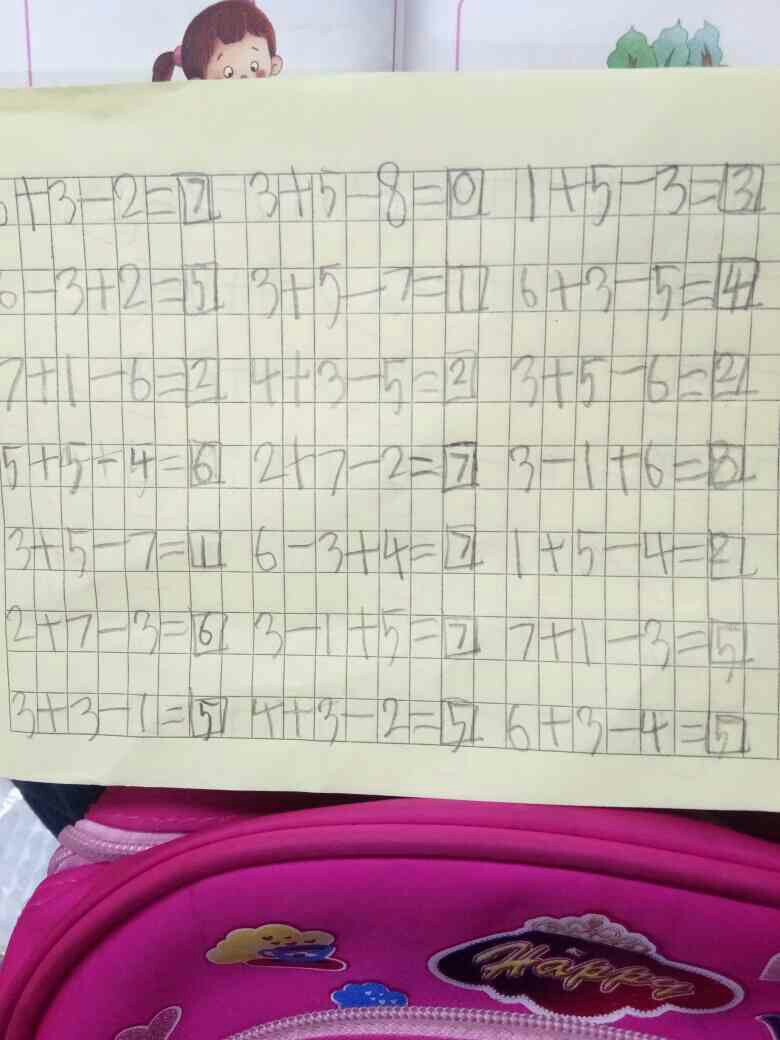 +3-2=7 3+5-8=0 1+5-3=3
6-3+2=5 3+5-7=1 6+3-5=4
7+1-6=2 4+3-5=2 3+5-6=2
5+5-4=6 2+7-2=7 3-1+6=8
3+5-7=1 6-3+4=7 1+5-4=2
2+7-3=6 3-1+5=7 7+1-3=5
3+3-1=5 4+3-2=5 6+3-4=5
Happy